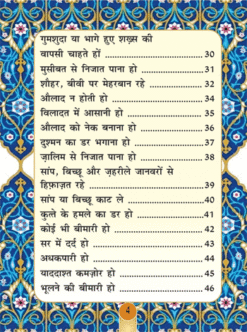 गुमशुदा या भागे हुए शख़्स की
वापसी चाहते हों ........................... 30
मुसीबत से निजात पाना हो ...................31
शौहर, बीवी पर मेहरबान रहे ............... 32
औलाद न होती हो ........................... 34
विलादत में आसानी हो ..................... 35
औलाद को नेक बनाना हो .................. 36
दुश्मन का डर भगाना हो .................... 37
ज़ालिम से निजात पाना हो .................. 38
सांप, बिच्छू और ज़हरीले जानवरों से
हिफ़ाज़त रहे .................................39
सांप या बिच्छू काट ले ......................40
कुत्ते के हमले का डर हो ...................41
कोई भी बीमारी हो .......................... 42
सर में दर्द हो ................................ 43
अधकपारी हो ................................ 44
याददाश्त कमज़ोर हो ....................... 45
भूलने की बीमारी हो ........................ 46
4